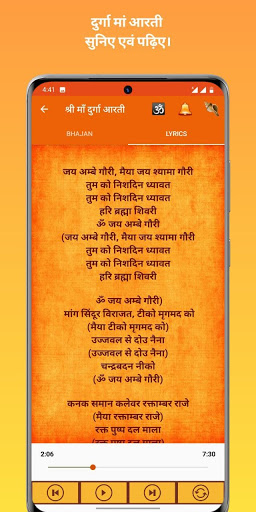 दुर्गा मां आरती
सुनिए एवं पढ़िए।
4:41
श्री माँ दुर्गा आरती
ॐ
BHAJAN
LYRICS
जय अम्बे गौरी, मैया जय श्यामा गौरी
तुम को निशदिन ध्यावत
तुम को निशदिन ध्यावत
हरि ब्रह्मा शिवरी
ॐ जय अम्बे गौरी
(जय अम्बे गौरी, मैया जय श्यामा गौरी
तुम को निशदिन ध्यावत
तुम को निशदिन ध्यावत
हरि ब्रह्मा शिवरी
ॐ जय अम्बे गौरी)
मांग सिंदूर विराजत, टीको मृगमद को
(मैया टीको मृगमद को)
उज्जवल से दोउ नैना
(उज्जवल से दोउ नैना)
चन्द्रबदन नीको
(ॐ जय अम्बे गौरी)
कनक समान कलेवर रक्ताम्बर राजे
(मैया रक्ताम्बर राजे)
रक्त पुष्प दल माला
(रक्त पुष्प दल माला)
2:06
7:30